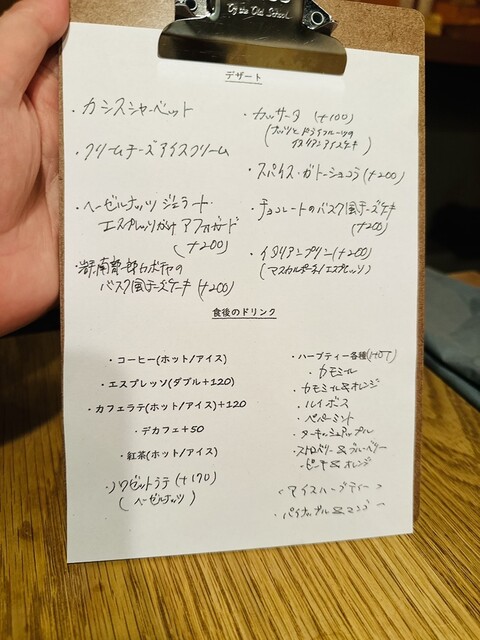 Og the Old School.
デザート
・カシスシャーベット
・クリームチーズアイスクリーム
・ヘーゼルナッツ ジェラート
エスプレッソがけ アフォガード
(+200)
バスク風チーズケーキ (+200)
・カッサータ (+100)
(ナッツとドライフルーツの
イタリアンアイスケーキ)
・スパイス・ガトーショコラ (+200)
・チョコレートのバスク風チーズケーキ
(+200)
・イタリアンプリン (+200)
(マスカルポーネ/エスプレッソ)
食後のドリンク
・コーヒー(ホット/アイス)
・エスプレッソ(ダブル+120)
・カフェラテ(ホット/アイス)+120
・デカフェ+50
・紅茶(ホット/アイス)
・ノワゼットラテ (+170)
(ヘーゼルナッツ)
・ハーブティー各種(HOT)
・カモミール
・カモミール&オレンジ
・ルイボス
・ペパーミント
・ターキッシュアップル
・ストロベリー&ブルーベリー
・ピーチ&オレンジ
<アイスハーブティー>
・パイナップル&マンゴー